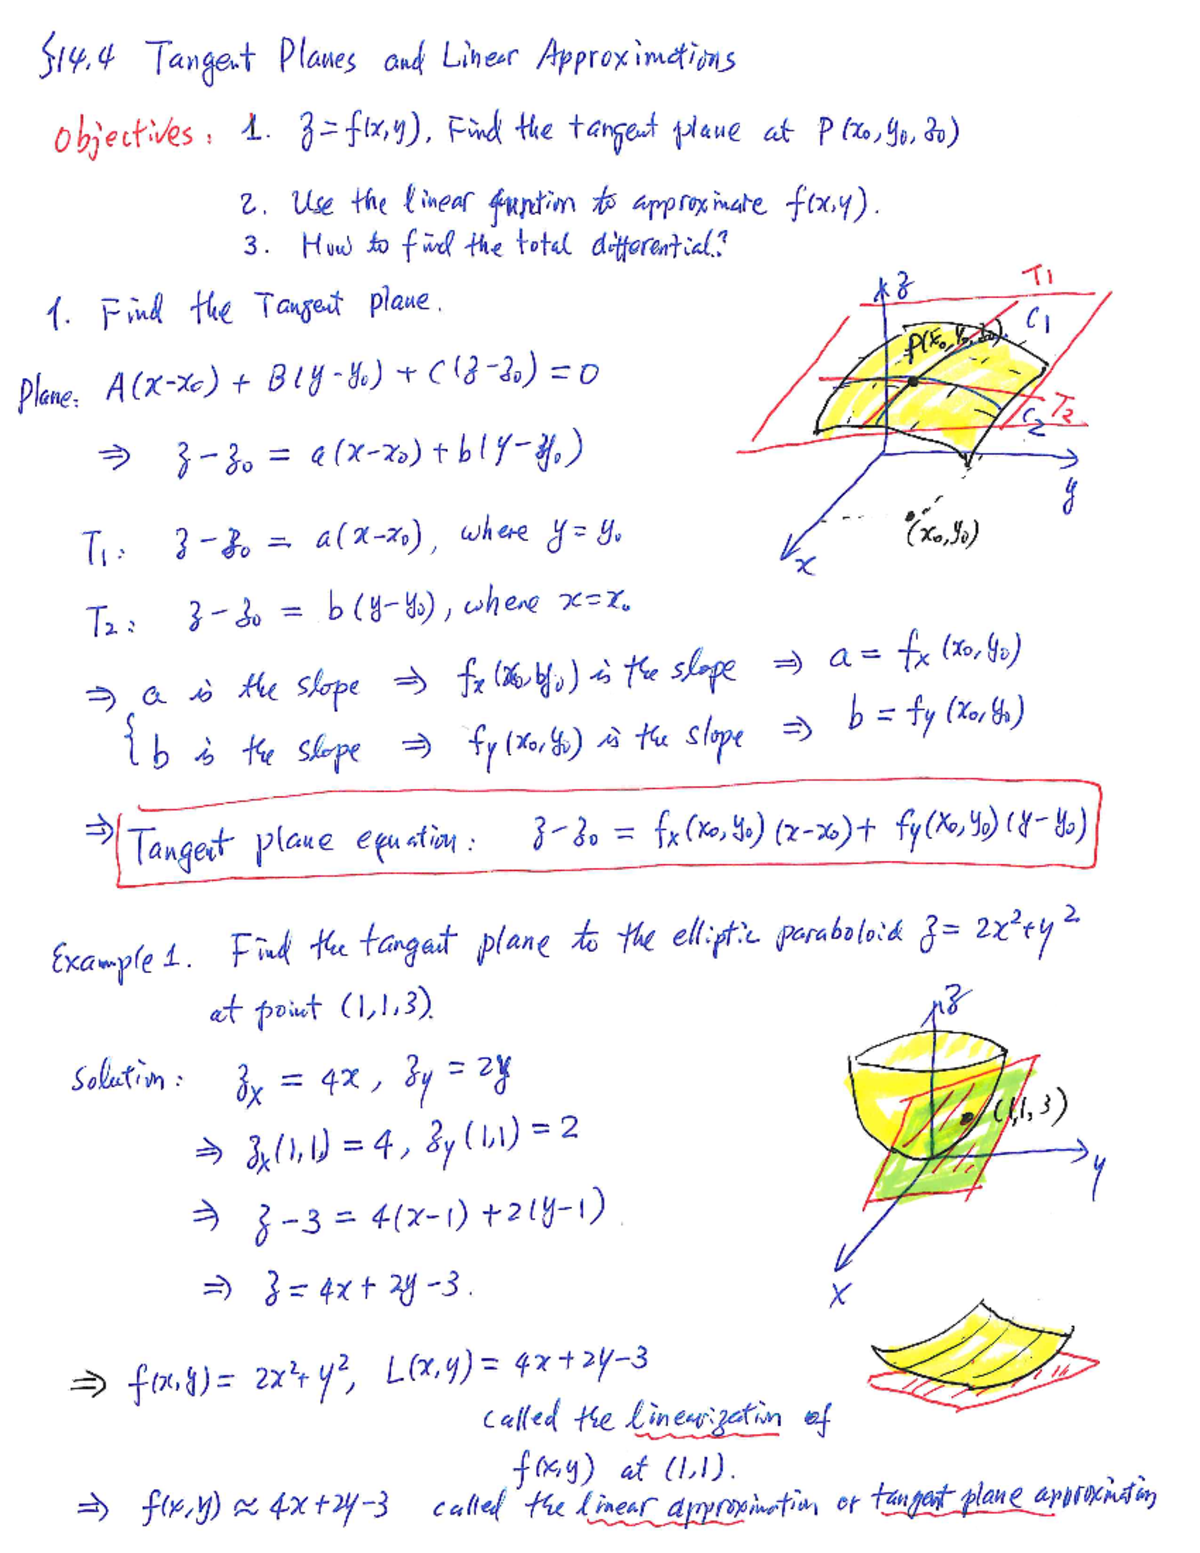 §14.4 Tangent Planes and Linear Approximations
Objectives: 1. z = f(x,y), Find the tangent plane at P(x₀, y₀, z₀)
2. Use the linear function to approximate f(x,y).
3. How to find the total differential?
1. Find the Tangent plane.
Plane: A(x-x₀) + B(y-y₀) + C(z-z₀) = 0
⇒ z-z₀ = a(x-x₀) + b(y-y₀)
T₁: z-z₀ = a(x-x₀), where y = y₀
T₂: z-z₀ = b(y-y₀), where x = x₀
⇒ { a is the slope ⇒ fx(x₀, y₀) is the slope ⇒ a = fx(x₀, y₀)
b is the slope ⇒ fy(x₀, y₀) is the slope ⇒ b = fy(x₀, y₀)
z
T₁
C₁
P(x₀, y₀, z₀)
T₂
C₂
y
(x₀, y₀)
x
⇒ Tangent plane equation: z-z₀ = fx(x₀, y₀)(x-x₀) + fy(x₀, y₀)(y-y₀)
Example 1. Find the tangent plane to the elliptic paraboloid z = 2x²+y²
at point (1,1,3).
Solution: zx = 4x, zy = 2y
⇒ zx(1,1) = 4, zy(1,1) = 2
⇒ z-3 = 4(x-1) + 2(y-1)
⇒ z = 4x + 2y - 3.
z
(1,1,3)
y
x
⇒ f(x,y) = 2x²+y², L(x,y) = 4x+2y-3
called the linearization of
f(x,y) at (1,1).
⇒ f(x,y) ≈ 4x+2y-3 called the linear approximation or tangent plane approximation